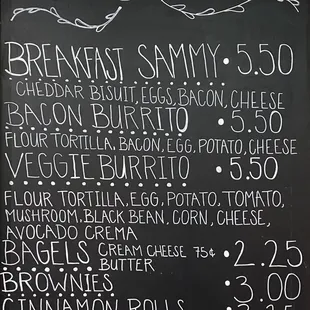 BREAKFAST SAMMY • 5.50
CHEDDAR BISUIT, EGGS, BACON, CHEESE
BACON BURRITO • 5.50
FLOUR TORTILLA, BACON, EGG, POTATO, CHEESE
VEGGIE BURRITO • 5.50
FLOUR TORTILLA, EGG, POTATO, TOMATO,
MUSHROOM, BLACK BEAN, CORN, CHEESE,
AVOCADO CREMA
BAGELS CREAM CHEESE 75¢ • 2.25
BUTTER
BROWNIES • 3.00
CINNAMON ROLLS